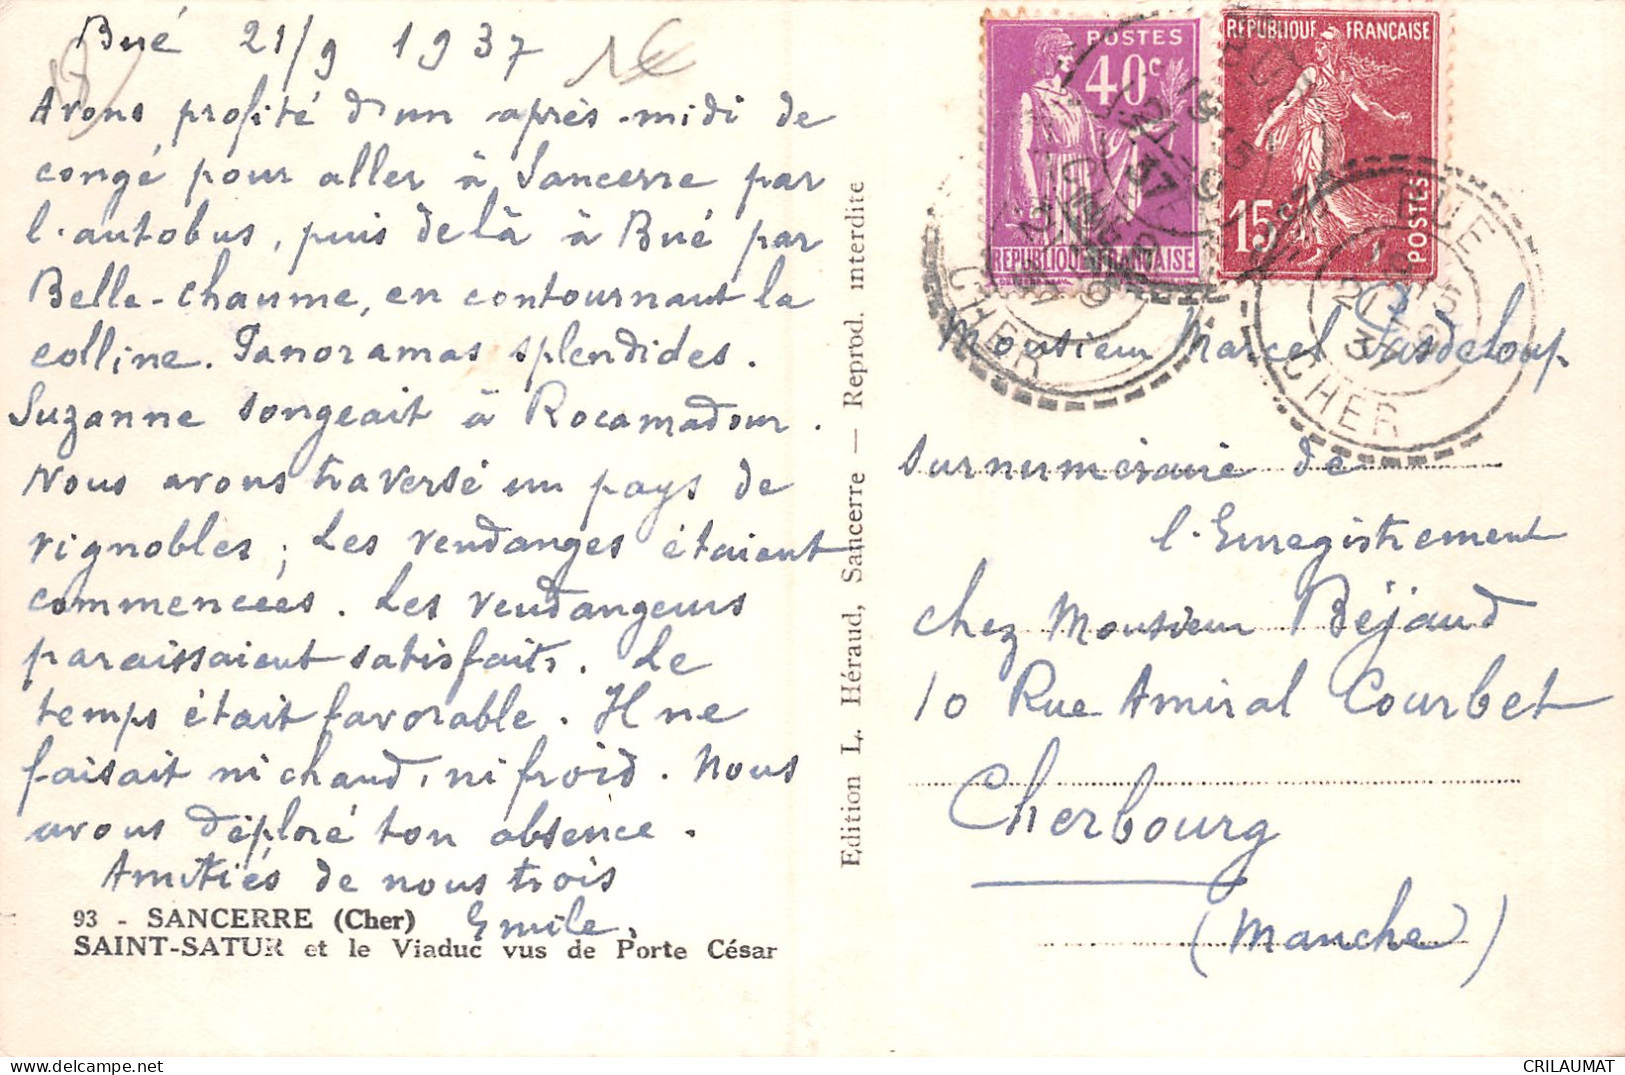 Bué 21/9 1937
Avons profité d'un après-midi de
congé pour aller à Sancerre par
l'autobus, puis de là à Bué par
Belle-chaume, en contournant la
colline. Panoramas splendides.
Suzanne songeait à Rocamadour.
Nous avons traversé un pays de
vignobles; Les vendanges étaient
commencées. Les vendangeurs
paraissaient satisfaits. Le
temps était favorable. Il ne
faisait ni chaud, ni froid. Nous
avons déploré ton absence.
Amitiés de nous trois
Emile.
93 - SANCERRE (Cher)
SAINT-SATUR et le Viaduc vus de Porte César
Edition L. Héraud, Sancerre — Reprod. interdite
POSTES
40c
REPUBLIQUE FRANÇAISE
REPUBLIQUE FRANÇAISE
15c
POSTES
BUE
21 - 9
37
CHER
CHER
Monsieur Marcel Pasdeloup
surnuméraire de
l'Enregistrement
chez Monsieur Béjaud
10 Rue Amiral Courbet
Cherbourg
(Manche)
1€
CRILAUMAT